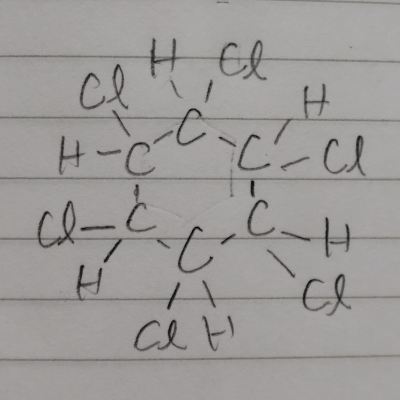 H Cl
Cl H
C
H C C Cl
Cl C C H
C
H Cl
Cl H